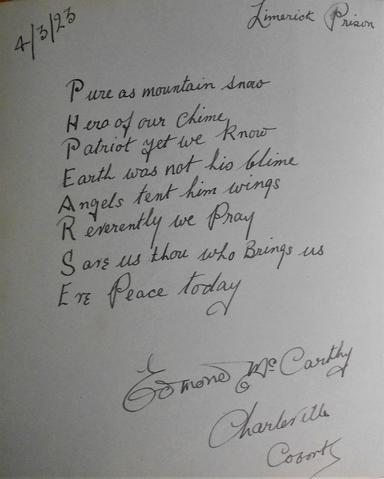 4/3/23
Limerick Prison
Pure as mountain snow
Hero of our Chime
Patriot yet we know
Earth was not his blime
Angels tent him wings
Reverently we Pray
Save us thou who Brings us
Ere Peace today
Edmond McCarthy
Charleville